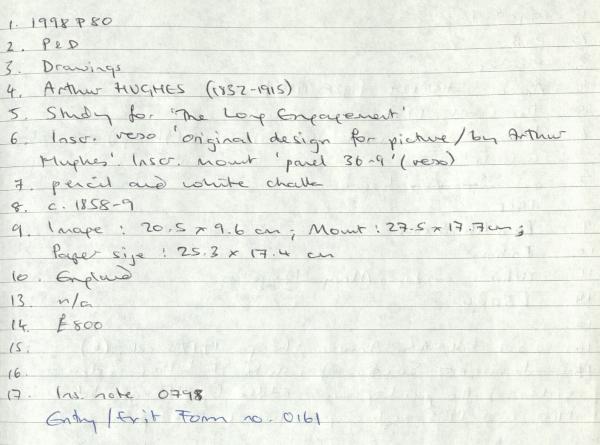 1. 1998 P 80
2. P & D
3. Drawings
4. Arthur HUGHES (1832-1915)
5. Study for 'The Long Engagement'
6. Inscr. verso 'original design for picture / by Arthur
Hughes'. Inscr. Mount 'panel 36-9' (verso)
7. pencil and white chalk
8. c. 1858-9
9. Image : 20.5 x 9.6 cm ; Mount : 27.5 x 17.7cm ;
Paper size : 25.3 x 17.4 cm
10. England
13. n/a
14. £800
15.
16.
17. Ins. note 0798
Entry / Exit Form no. 0161